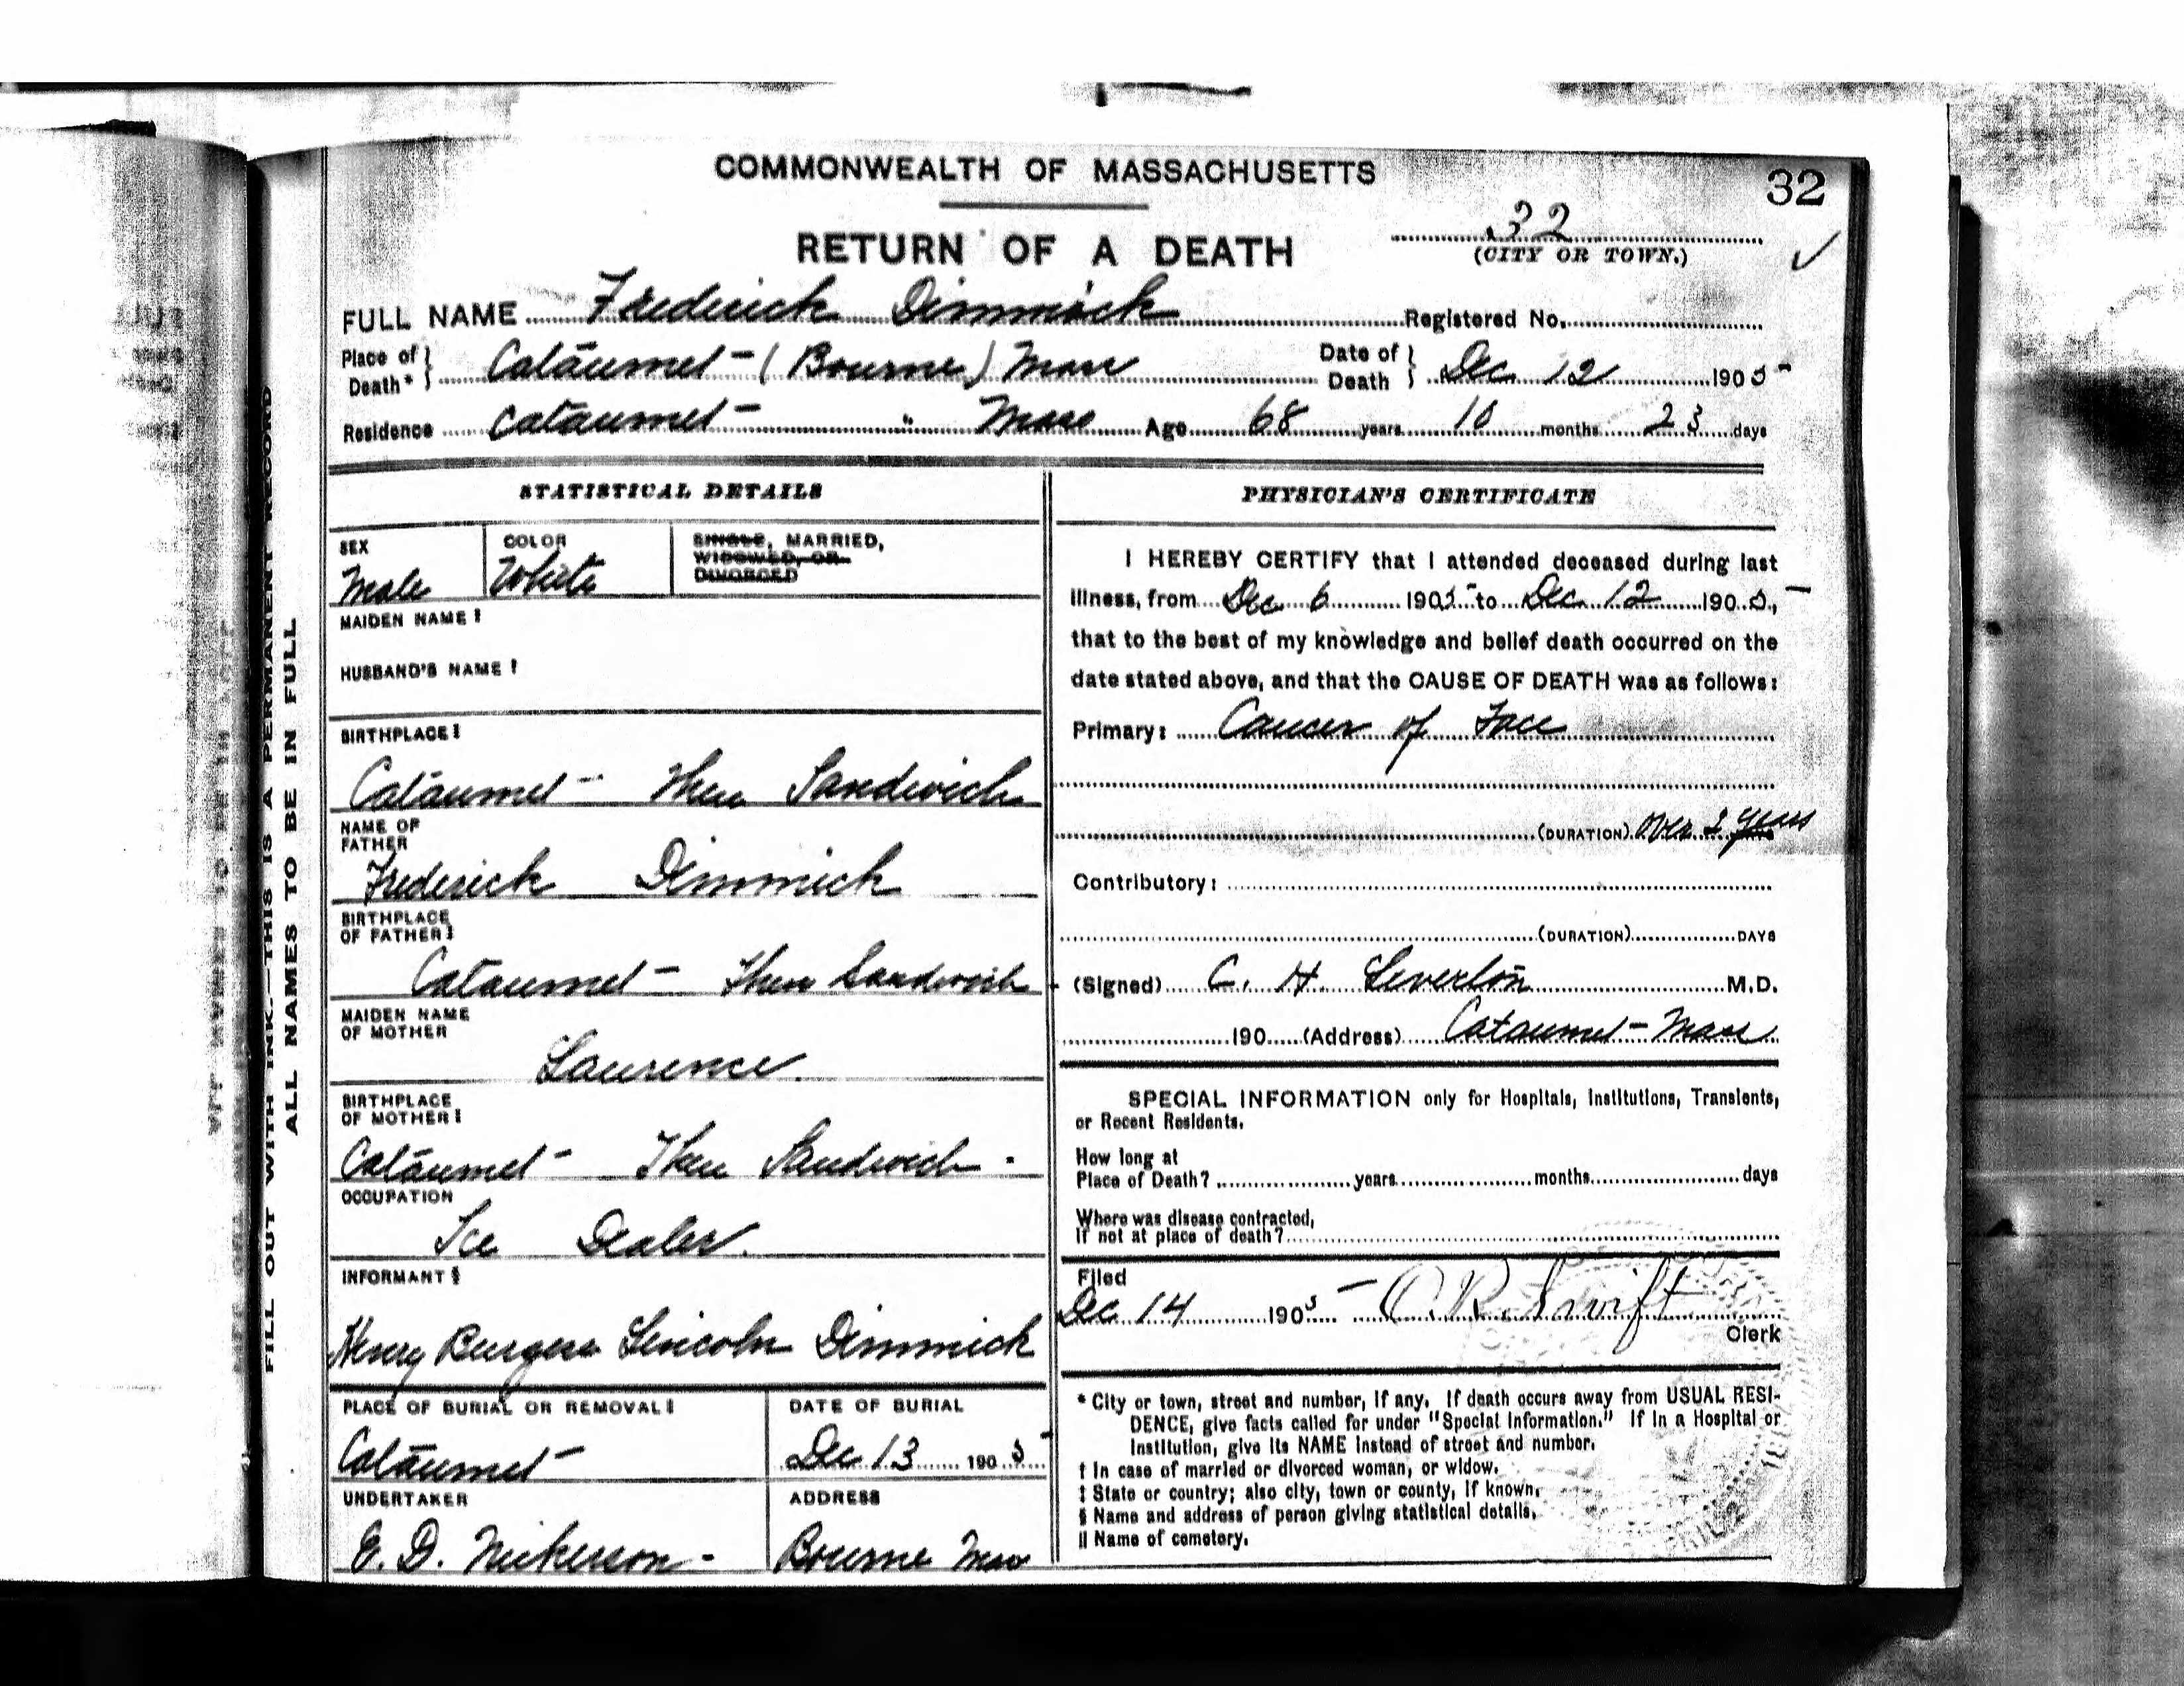 COMMONWEALTH OF MASSACHUSETTS
32
RETURN OF A DEATH
32
(CITY OR TOWN.)
FULL NAME Frederick Dimmick Registered No.
Place of Death* Cataumet - (Bourne) Mass Date of Death Dec 12 1905
Residence Cataumet - " Mass Age 68 years 10 months 23 days
STATISTICAL DETAILS
SEX
Male
COLOR
White
SINGLE, MARRIED,
WIDOWED, OR
DIVORCED
MAIDEN NAME †
HUSBAND'S NAME †
BIRTHPLACE ‡
Cataumet - then Sandwich
NAME OF
FATHER
Frederick Dimmick
BIRTHPLACE
OF FATHER ‡
Cataumet - then Sandwich
MAIDEN NAME
OF MOTHER
Laurence.
BIRTHPLACE
OF MOTHER ‡
Cataumet - Then Sandwich -
OCCUPATION
Ice Dealer.
INFORMANT §
Henry Burgess Lincoln Dimmick
PLACE OF BURIAL OR REMOVAL ‖
Cataumet -
DATE OF BURIAL
Dec 13 1905
UNDERTAKER
E. D. Nickerson -
ADDRESS
Bourne Mass
PHYSICIAN'S CERTIFICATE
I HEREBY CERTIFY that I attended deceased during last
illness, from Dec 6 1905 to Dec 12 1905,
that to the best of my knowledge and belief death occurred on the
date stated above, and that the CAUSE OF DEATH was as follows:
Primary: Cancer of Face
(DURATION) Over 2 years
Contributory:
(DURATION) DAYS
(Signed) C. H. Leverton M.D.
190 (Address) Cataumet - Mass
SPECIAL INFORMATION only for Hospitals, Institutions, Transients,
or Recent Residents.
How long at
Place of Death? years months days
Where was disease contracted,
If not at place of death?
Filed
Dec 14 1905 - C. R. Swift
Clerk
* City or town, street and number, if any. If death occurs away from USUAL RESI-
DENCE, give facts called for under "Special Information." If in a Hospital or
Institution, give its NAME instead of street and number.
† In case of married or divorced woman, or widow.
‡ State or country; also city, town or county, if known.
§ Name and address of person giving statistical details.
‖ Name of cemetery.
FILL OUT WITH INK.—THIS IS A PERMANENT RECORD
ALL NAMES TO BE IN FULL